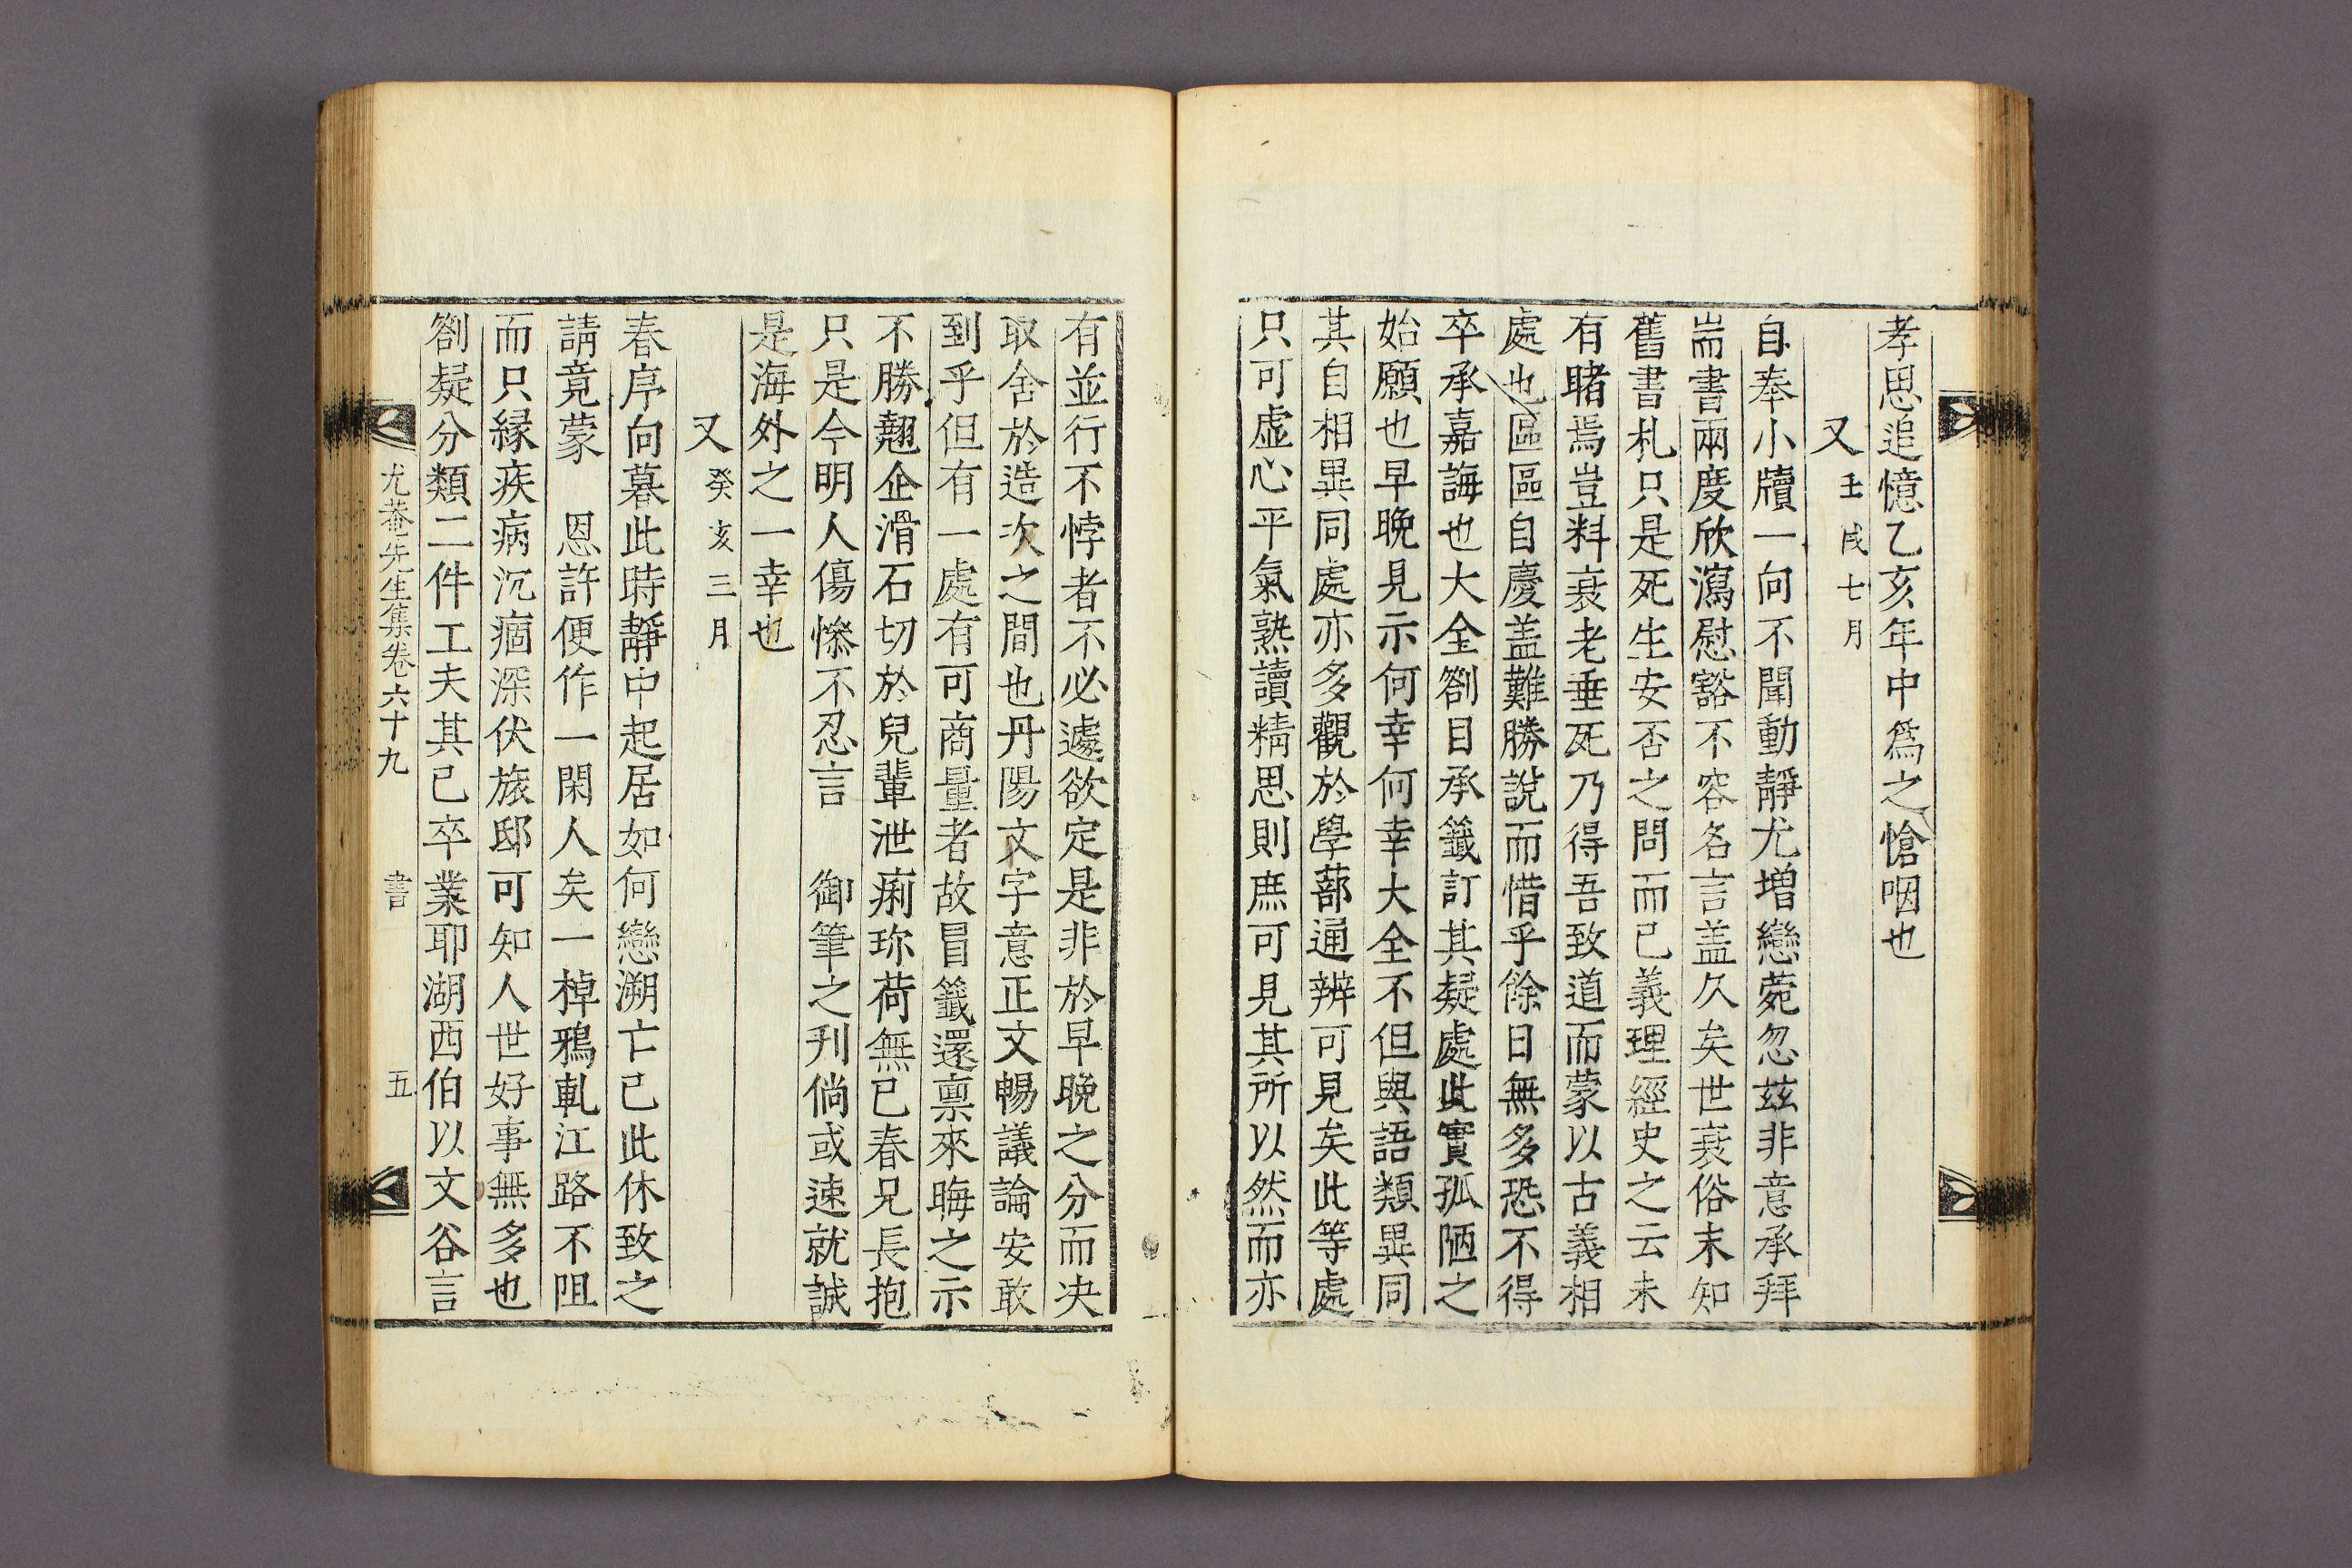 孝思追憶乙亥年中爲之愴咽也
又 壬戌七月
自奉小牘一向不聞動靜尤增戀菀忽玆非意承拜
耑書兩度欣瀉慰豁不容名言盖久矣世衰俗末知
舊書札只是死生安否之問而已義理經史之云未
有睹焉豈料衰老垂死乃得吾致道而蒙以古義相
處也區區自慶盖難勝說而惜乎餘日無多恐不得
卒承嘉誨也大全箚目承籤訂其疑處此實孤陋之
始願也早晩見示何幸何幸大全不但與語類異同
其自相異同處亦多觀於學蔀通辨可見矣此等處
只可虛心平氣熟讀精思則庶可見其所以然而亦
有並行不悖者不必遽欲定是非於早晩之分而决
取舍於造次之間也丹陽文字意正文暢議論安敢
到乎但有一處有可商量者故冒籤還禀來晦之示
不勝翹企滑石切於兒輩泄痢珎荷無已春兄長抱
只是今明人傷慘不忍言 御筆之刋倘或速就誠
是海外之一幸也
又 癸亥三月
春序向暮此時靜中起居如何戀溯亡已此休致之
請竟蒙 恩許便作一閑人矣一棹鴉軋江路不阻
而只緣疾病沉痼深伏旅邸可知人世好事無多也
箚疑分類二件工夫其已卒業耶湖西伯以文谷言
尤菴先生集卷六十九 書 五